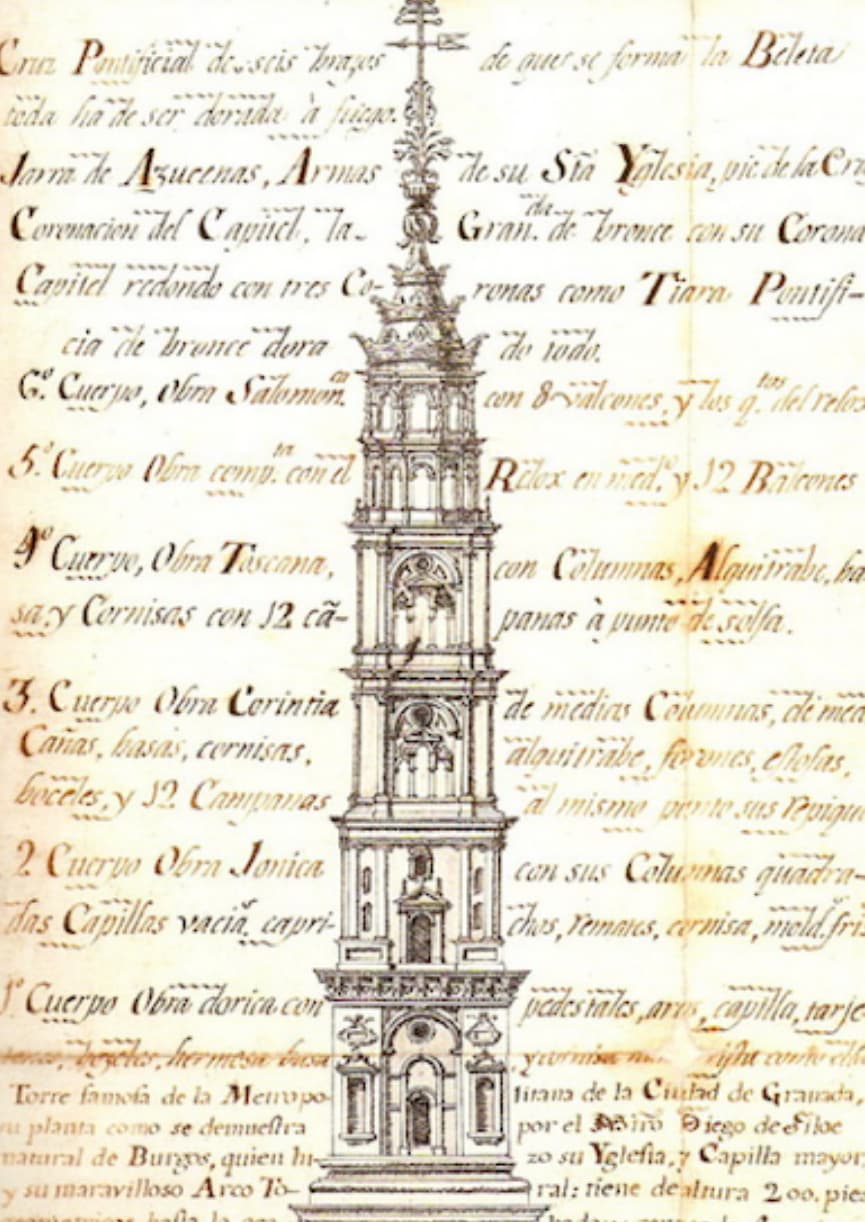 Cruz Pontificial de seis brazos de que se forma la Beleta
toda ha de ser dorada à fuego.
Jarra de Azucenas, Armas de su Sta Yglesia, pie de la Cru
Coronacion del Capitel, la Gran. cla de bronce con su Corona
Capitel redondo con tres Co- ronas como Tiara Pontifi-
cia de bronce dora do todo.
6º. Cuerpo, Obra Salomon.ca con 8 valcones, y los q.tos del relox
5º. Cuerpo Obra comp.ta con el Relox en med.º y 12 Balcones
4º Cuerpo, Obra Toscana, con Columnas, Alquitrabe, ba
sa y Cornisas con 12 cã- panas à punto de solfa.
3. Cuerpo Obra Corintia de medias Columnas, de med
Cañas, basas, cornisas, alquitrabe, florones,
boceles, y 12 Campanas al mismo punto sus repiqu
2 Cuerpo Obra Jonica con sus Columnas quadra-
das Capillas vacia.s capri- chos, remates, cornisa, mold.s fris
1º Cuerpo Obra dorica con pedestales, arcos, capilla, tarje
boceles, hermosa basa y cornisa
Torre famosa de la Metropo- litana de la Ciudad de Granada,
su planta como se demuestra por el Mstro Diego de Siloe
natural de Burgos, quien hi- zo su Yglesia, y Capilla mayor,
y su maravilloso Arco To- ral: tiene de altura 200. pies